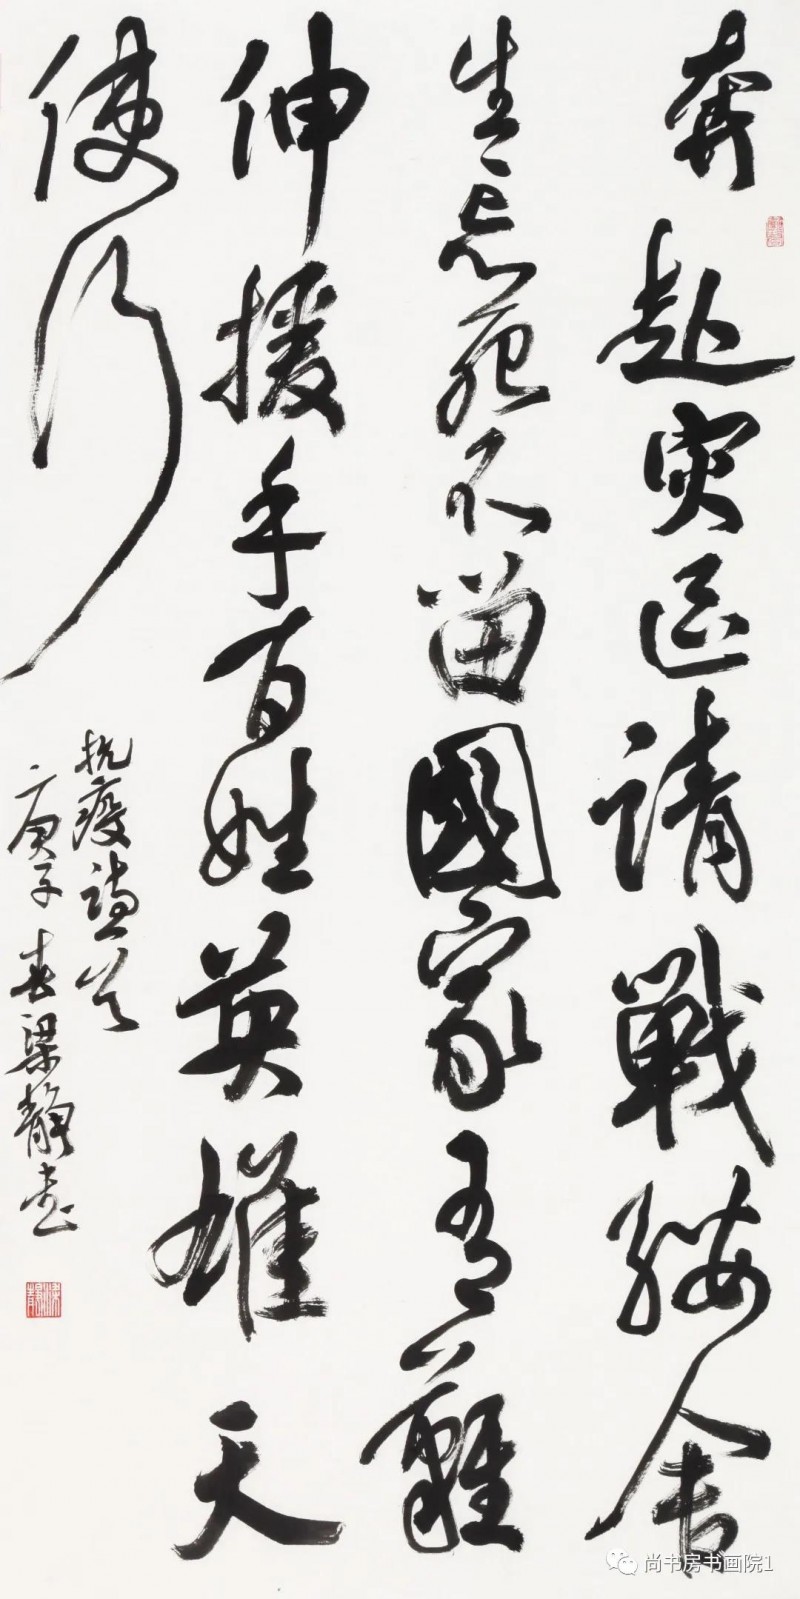 奔赴灾區請戰纓舍
生忘死不留國家有難
伸援手百姓英雄天
使行
抗疫
庚子春梁靜書
尚书房书画院1